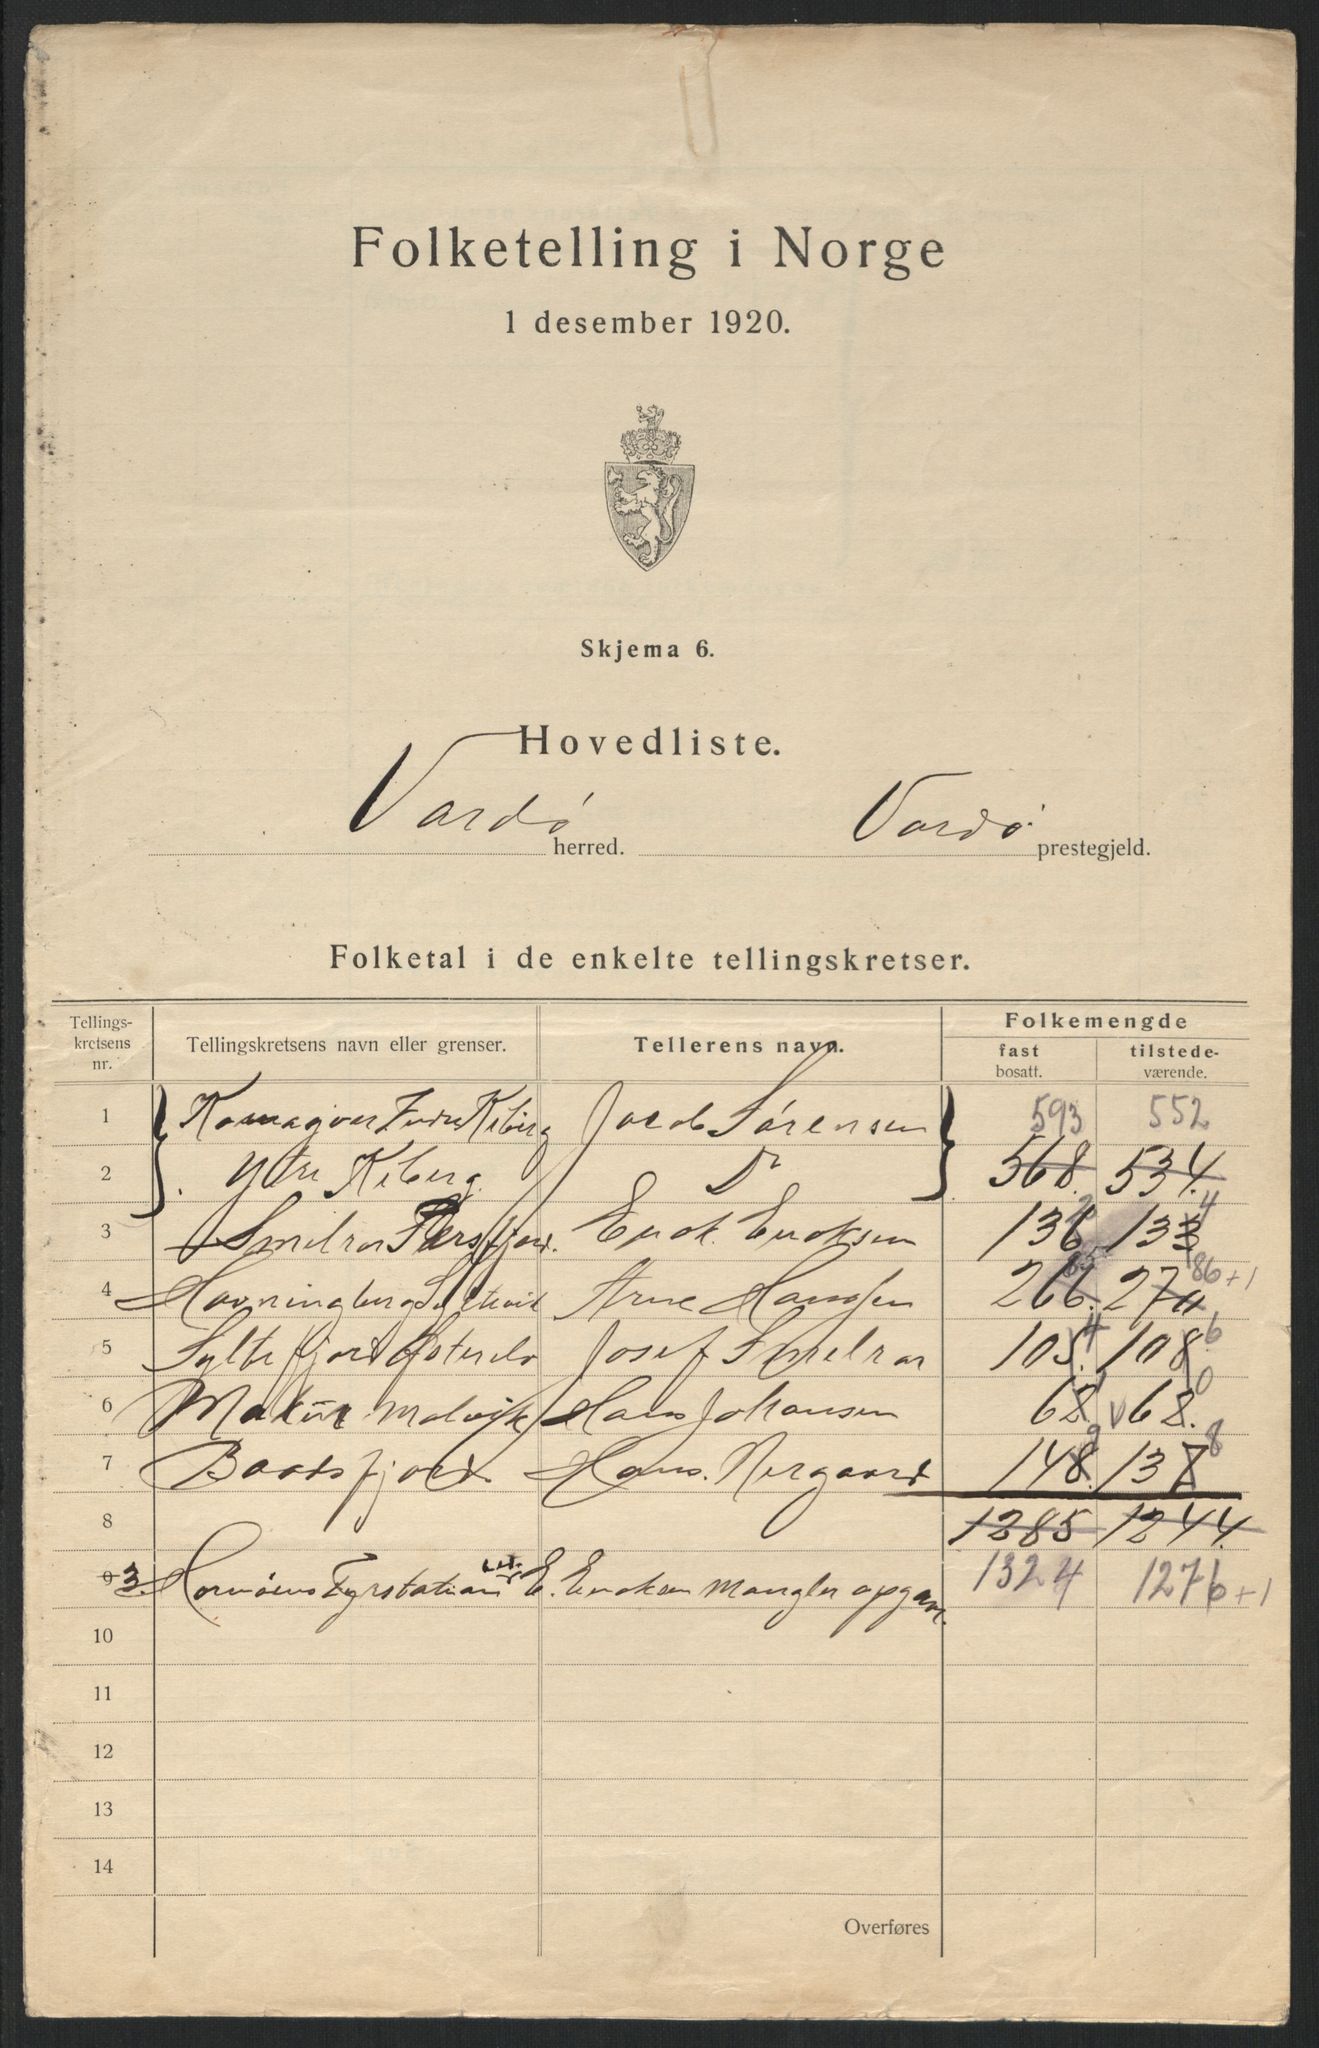 Folketelling i Norge
1 desember 1920.
Skjema 6.
Hovedliste.
Vardø herred. Vardø prestegjeld.
Folketal i de enkelte tellingskretser.
Tellings-kretsens nr. Tellingskretsens navn eller grenser. Tellerens navn. Folkemengde
fast bosatt. tilstede-værende.
1 Komagvær Indre Kiberg Jacob Sørensen 593 552
2 Ytre Kiberg Do 568. 534.
3 Smelror Persfjord. Erick Ericksen 136 2 133 4
4 Havningberg Arne Hansen 266. 85 274 86+1
5 Syltefjord Østerelv Josef Smelror 105. 4 108. 6
6 Makur Molvik Hans Johansen 68 68. 0
7 Baadsfjord Hans. Nergaard 148. 9 137 8
8 1285 1244.
9 3. Hornøens Fyrstation E. Ericksen Mangler opgave. 1324 1276+1
10
11
12
13
14
Overføres